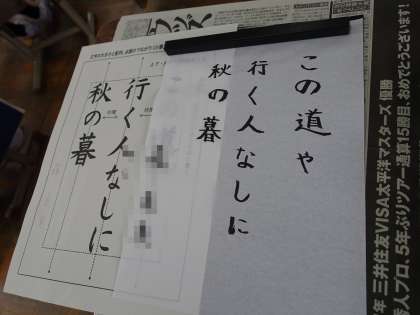 この道や
行く人なしに
秋の暮
行く人なしに
秋の暮
三井住友VISA太平洋マスターズ 優勝
プロ、5年ぶりツアー通算15勝目、おめでとうございます!